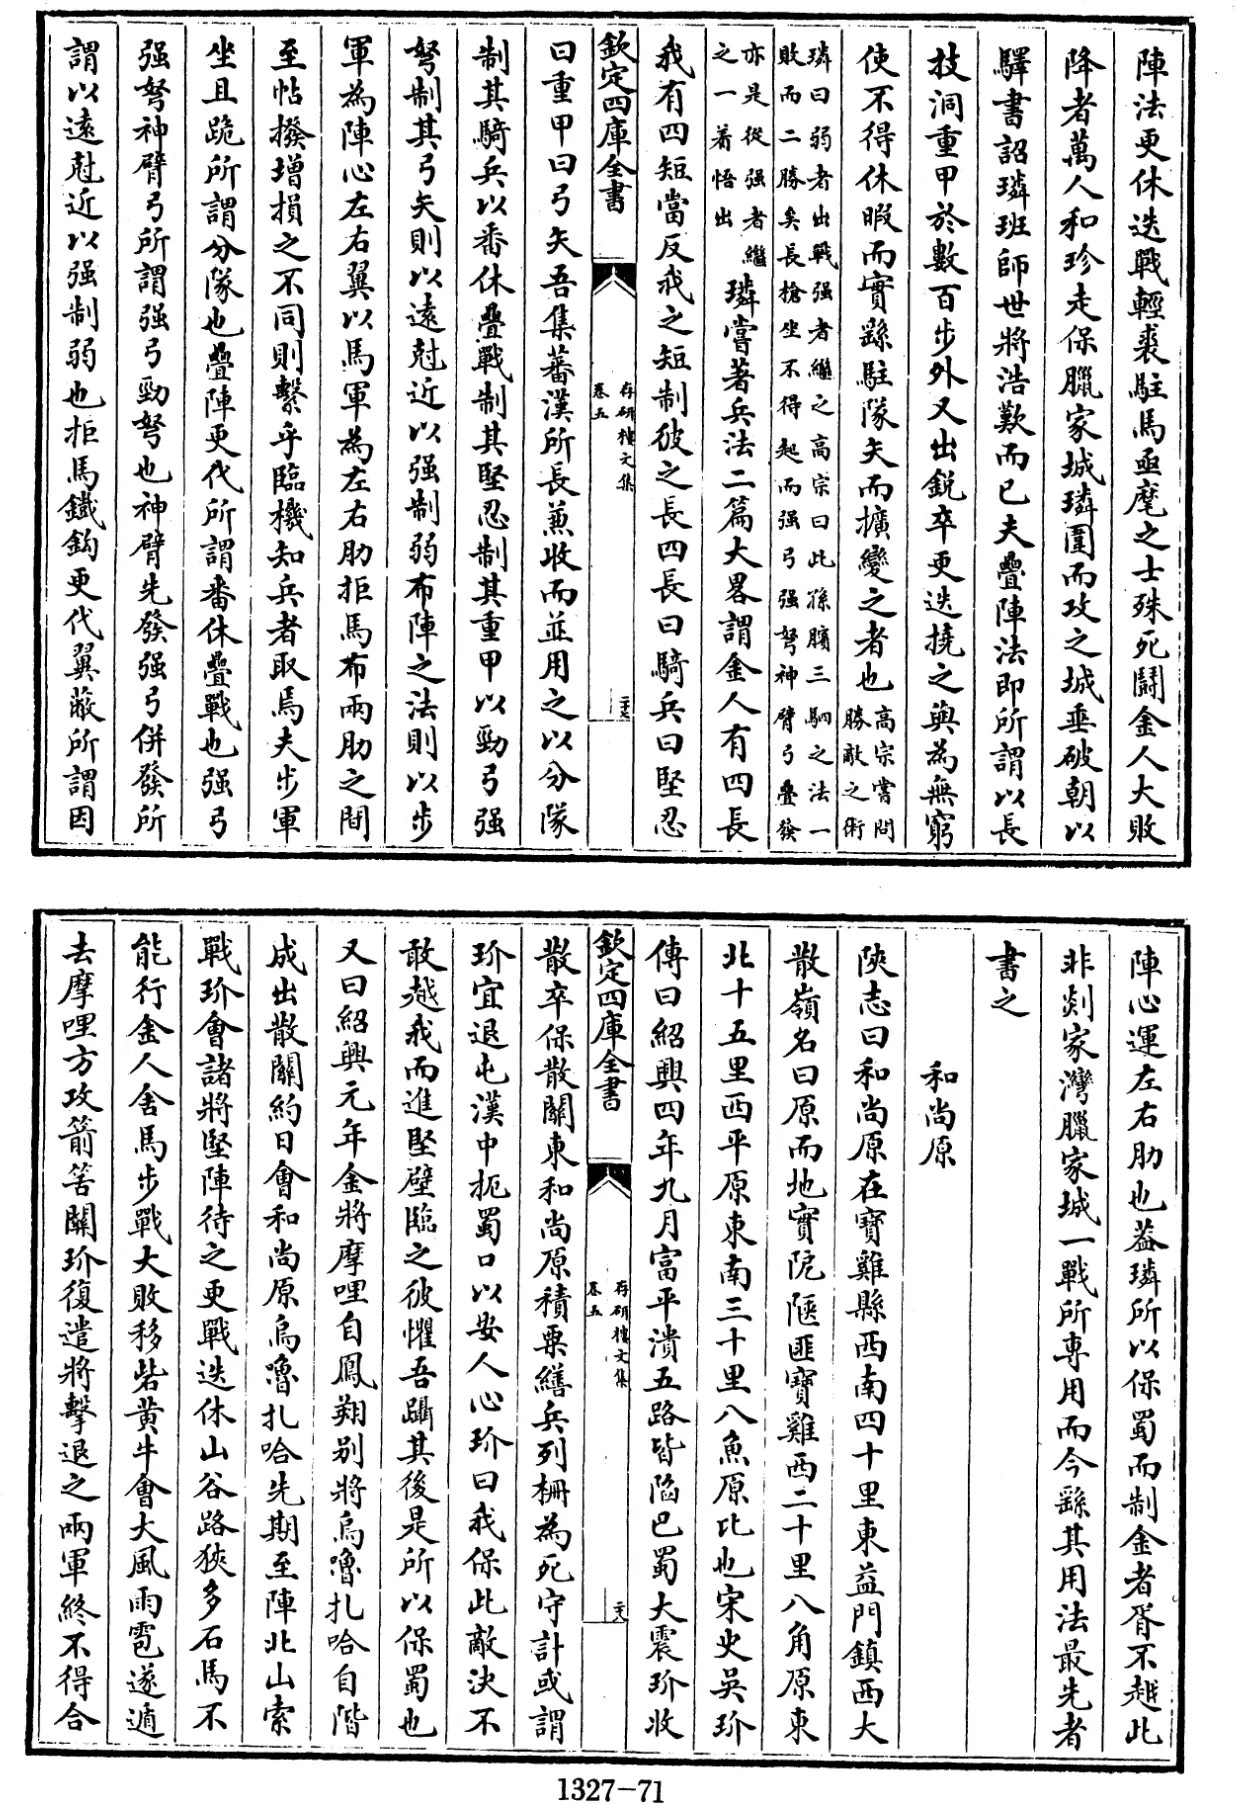 陣法更休迭戰輕裘駐馬亟麾之士殊死鬪金人大敗
降者萬人和珍走保臘家城璘圍而攻之城垂破朝以
驛書詔璘班師世將浩歎而已夫疊陣法即所謂以長
技洞重甲於數百步外又出銳卒更迭撓之與為無窮
使不得休暇而實繇駐隊矢而擴變之者也高宗嘗問
勝敵之術
璘曰弱者出戰强者繼之高宗曰此孫臏三駟之法一
敗而二勝矣長槍坐不得起而强弓强弩神臂弓疊發
亦是從强者繼
之一着悟出
璘嘗著兵法二篇大畧謂金人有四長
我有四短當反我之短制彼之長四長曰騎兵曰堅忍
欽定四庫全書
存研樓文集
卷五
二十七
曰重甲曰弓矢吾集蕃漢所長兼收而並用之以分隊
制其騎兵以番休疊戰制其堅忍制其重甲以勁弓强
弩制其弓矢則以遠尅近以强制弱布陣之法則以步
軍為陣心左右翼以馬軍為左右肋拒馬布兩肋之間
至帖撥增損之不同則繫乎臨機知兵者取焉夫步軍
坐且跪所謂分隊也疊陣更代所謂番休疊戰也强弓
强弩神臂弓所謂强弓勁弩也神臂先發强弓併發所
謂以遠尅近以强制弱也拒馬鐵鈎更代翼蔽所謂因
陣心運左右肋也葢璘所以保蜀而制金者胥不越此
非剡家灣臘家城一戰所専用而今繇其用法最先者
書之
和尚原
陝志曰和尚原在寶雞縣西南四十里東益門鎮西大
散嶺名曰原而地實阨隁匪寶雞西二十里八角原東
北十五里西平原東南三十里八魚原比也宋史吳玠
傳曰紹興四年九月富平潰五路皆陷巴蜀大震玠收
欽定四庫全書
存研樓文集
卷五
二十八
散卒保散關東和尚原積粟繕兵列柵為死守計或謂
玠宜退屯漢中扼蜀口以安人心玠曰我保此敵決不
敢越我而進堅壁臨之彼懼吾躡其後是所以保蜀也
又曰紹興元年金將摩哩自鳳翔别將烏嚕扎哈自階
成出散關約日會和尚原烏嚕扎哈先期至陣北山索
戰玠會諸將堅陣待之更戰迭休山谷路狹多石馬不
能行金人舍馬步戰大敗移砦黄牛會大風雨雹遂遁
去摩哩方攻箭筈關玠復遣將擊退之兩軍終不得合
1327-71